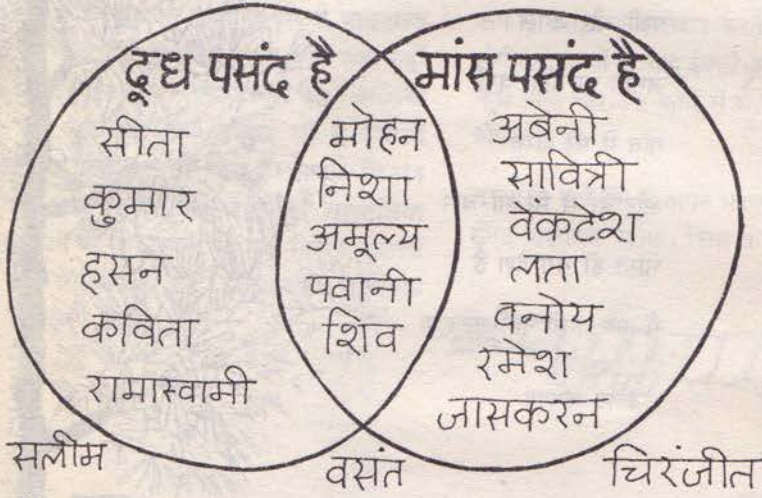 दूध पसंद है
मांस पसंद है
सीता
कुमार
हसन
कविता
रामास्वामी
मोहन
निशा
अमूल्य
पवानी
शिव
अबेनी
सावित्री
वेंकटेश
लता
वनोय
रमेश
जासकरन
सलीम
वसंत
चिरंजीत